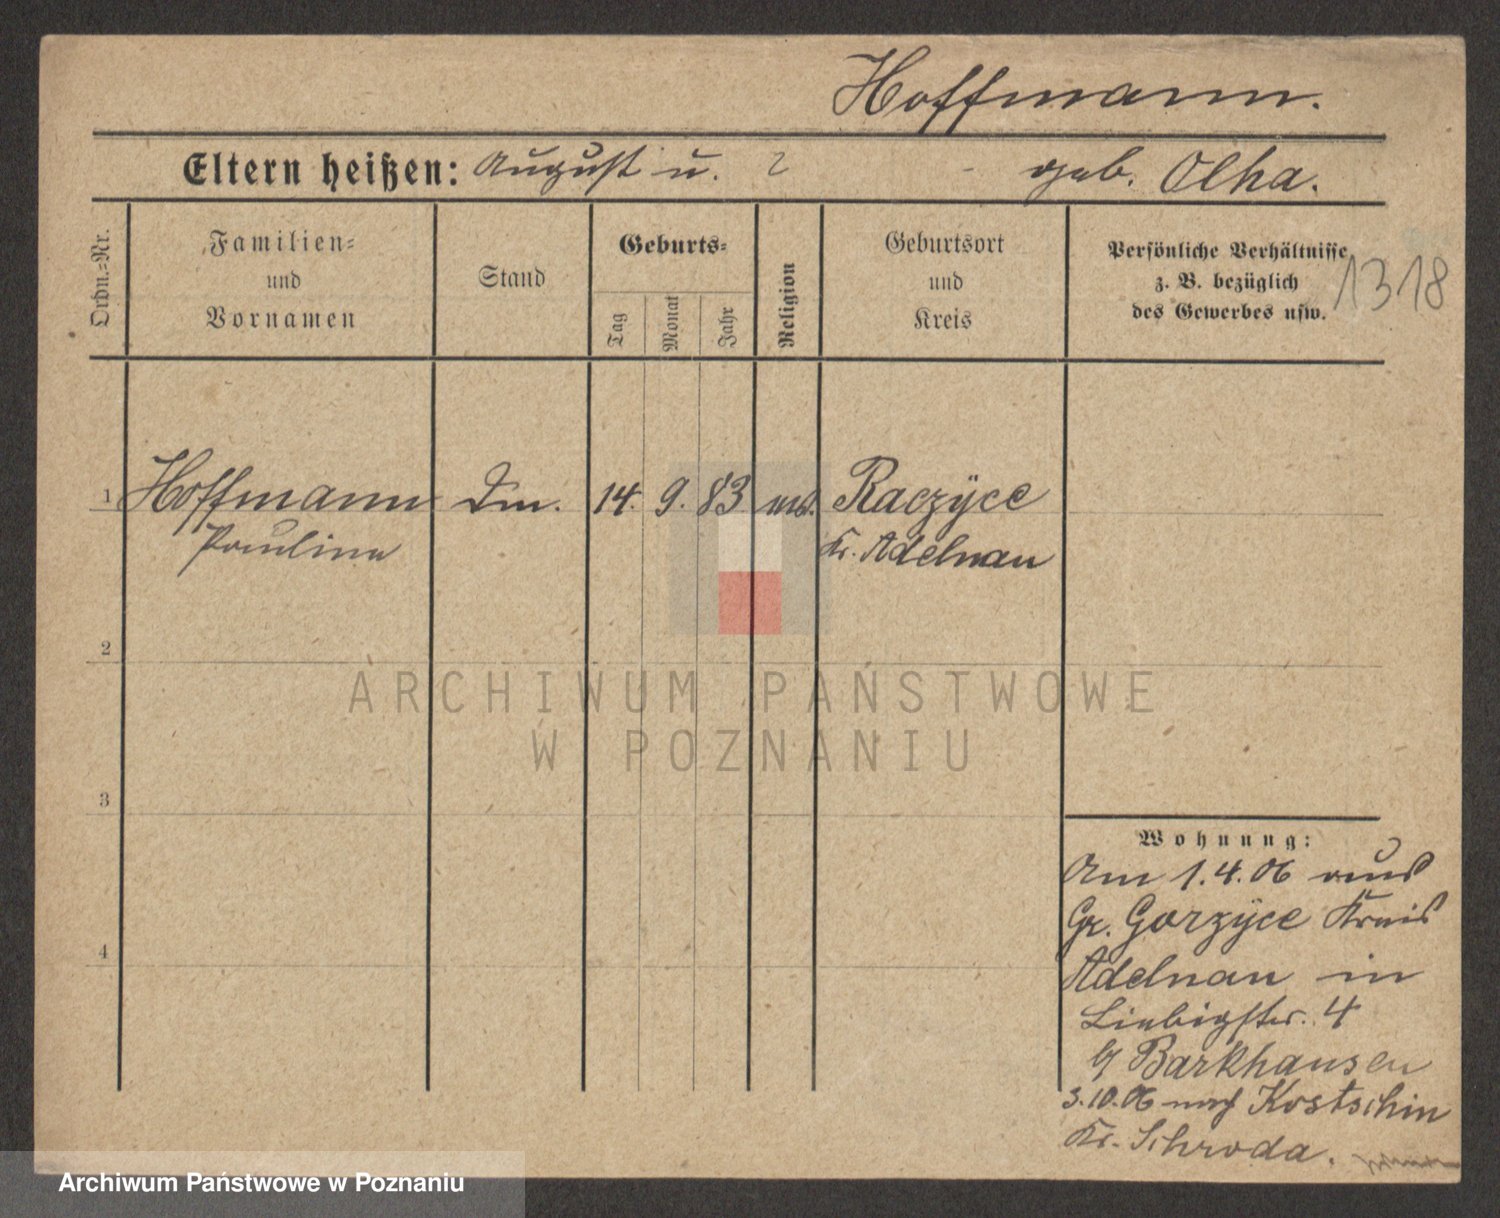 Hoffmann.
Eltern heißen: August u. ? geb. Olha.
Ordn.=Nr.
Familien=
und
Vornamen
Stand
Geburts=
Tag
Monat
Jahr
Religion
Geburtsort
und
Kreis
Persönliche Verhältnisse
z. B. bezüglich
des Gewerbes usw.
1318
1 Hoffmann Dm. 14. 9. 83 Raczÿce
Pauline Kr. Adelnau
2
3
4
Wohnung:
Am 1.4.06 aus
Gr. Gorzÿce Kreis
Adelnau in
Liebigstr. 4
b/ Barkhausen
3.10.06 nach Kostschin
Kr. Schroda.
ARCHIWUM PAŃSTWOWE
W POZNANIU
Archiwum Państwowe w Poznaniu